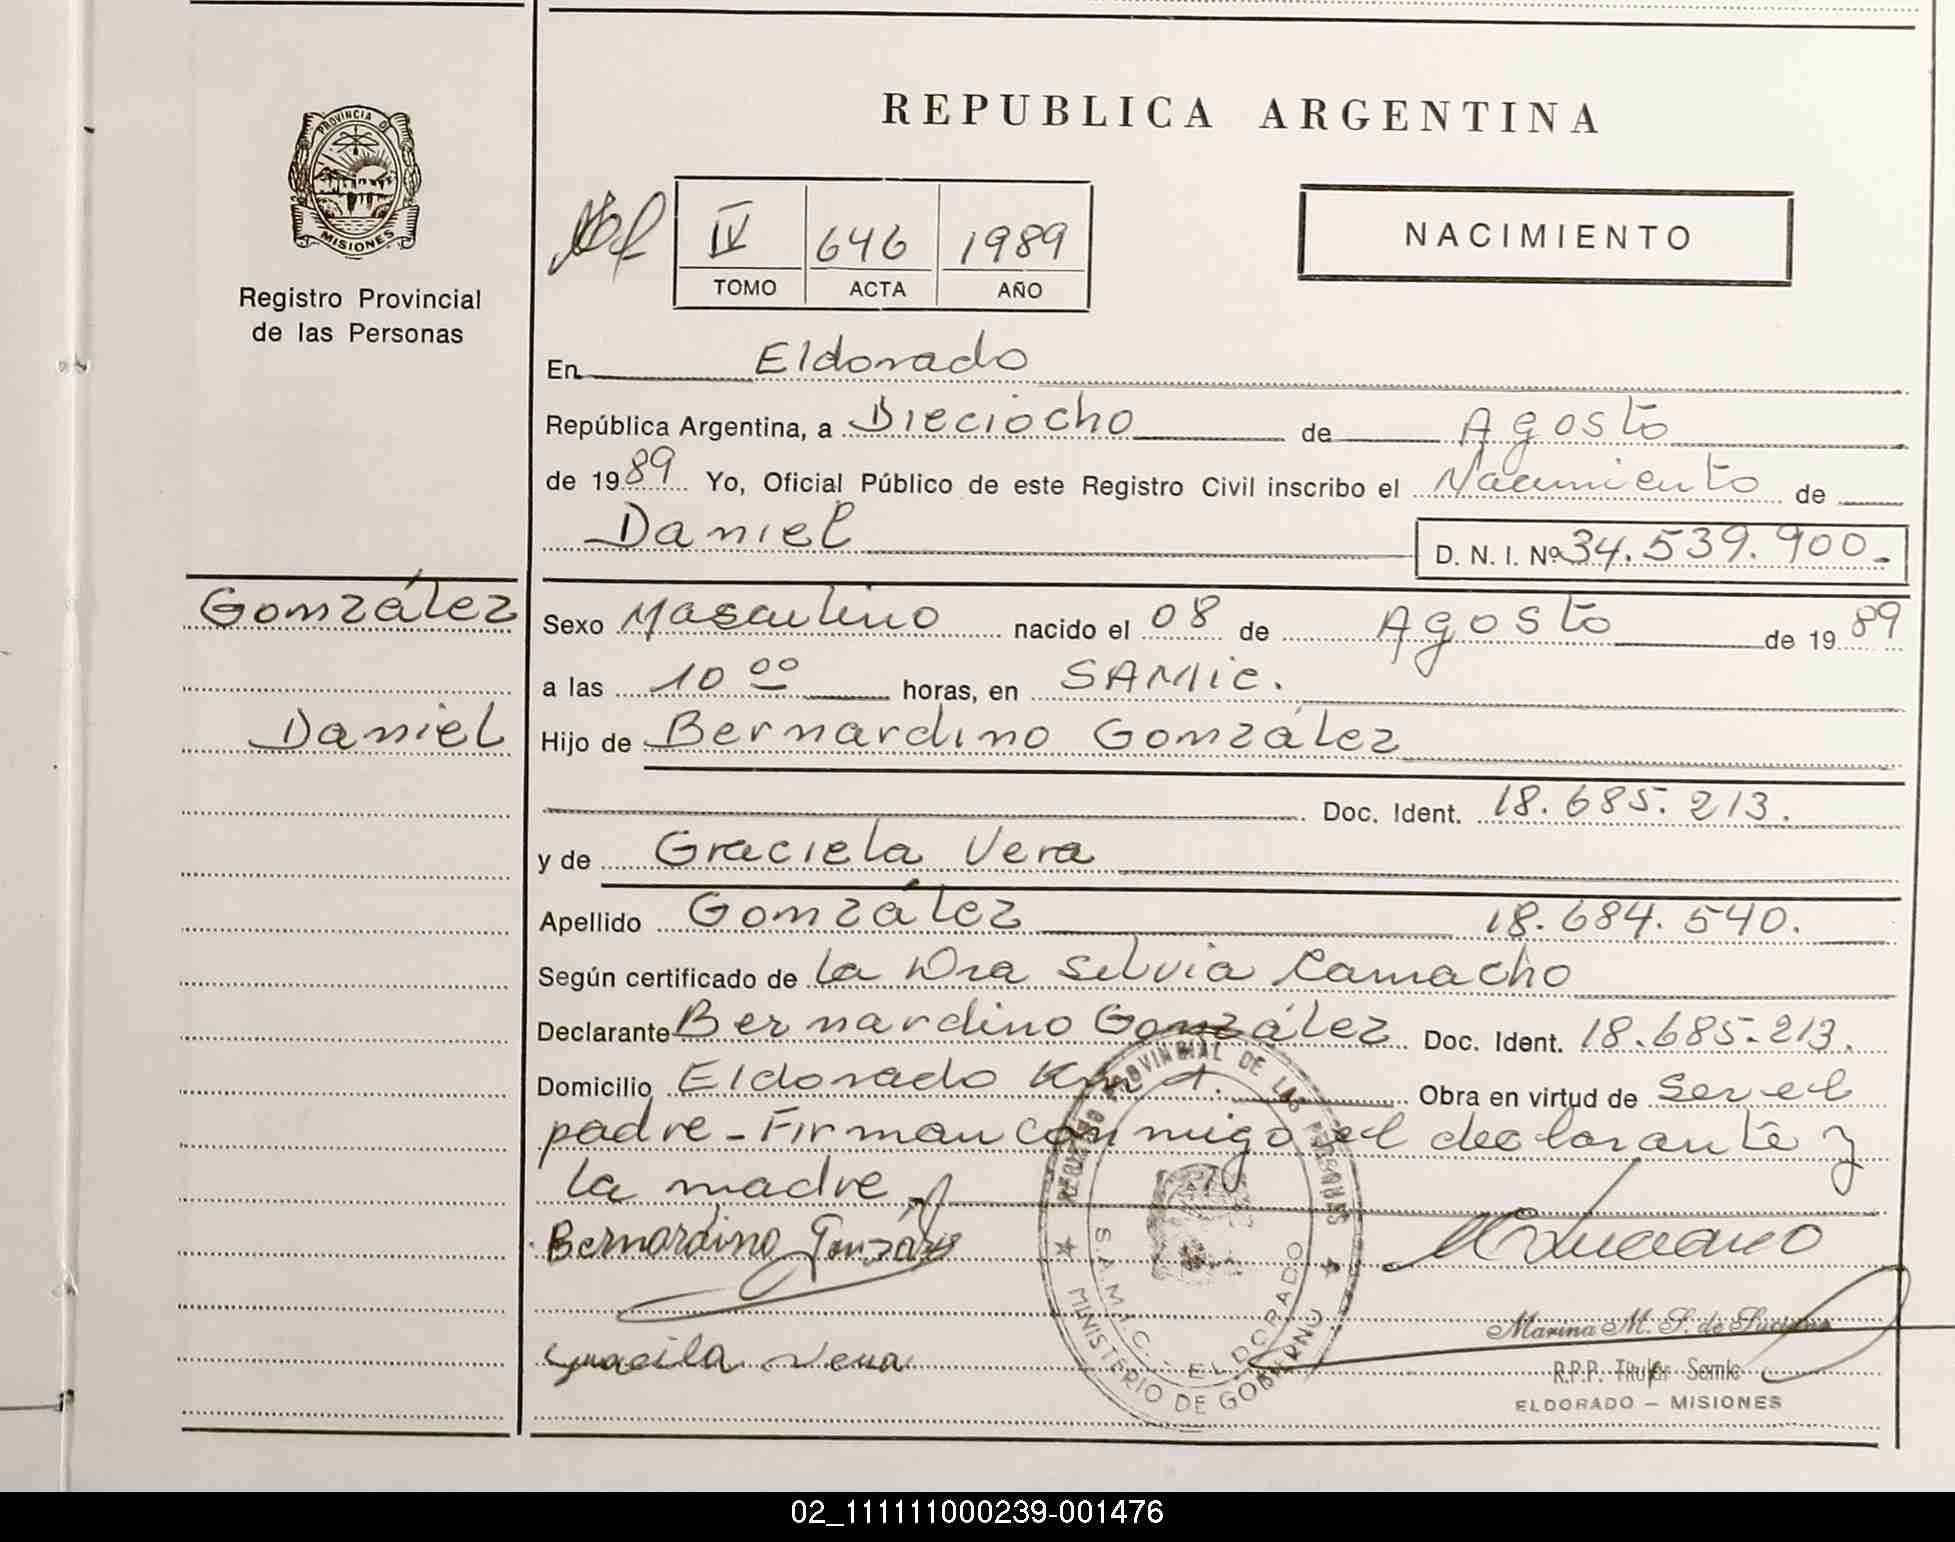 REPUBLICA ARGENTINA
PROVINCIA DE
MISIONES
Registro Provincial
de las Personas
IV 646 1989
TOMO ACTA AÑO
NACIMIENTO
En Eldorado
República Argentina, a Dieciocho de Agosto
de 1989 Yo, Oficial Público de este Registro Civil inscribo el Nacimiento de
Daniel D. N. I. Nº 34.539.900.-
González
Daniel
Sexo Masculino nacido el 08 de Agosto de 1989
a las 10 00 horas, en SAMIC.
Hijo de Bernardino González
Doc. Ident. 18.685.213.
y de Graciela Vera
Apellido González 18.684.540.
Según certificado de la Dra Silvia Camacho
Declarante Bernardino González Doc. Ident. 18.685.213.
Domicilio Eldorado Km Obra en virtud de ser el
padre - Firman conmigo el declarante y
la madre
Bernardino González
Graciela Vera
REGISTRO PROVINCIAL DE LAS PERSONAS
S.A.M.I.C. - ELDORADO
MINISTERIO DE GOBIERNO
Marina M. S. de Luciano
R.P.P. Titular Samic
ELDORADO – MISIONES
02_111111000239-001476